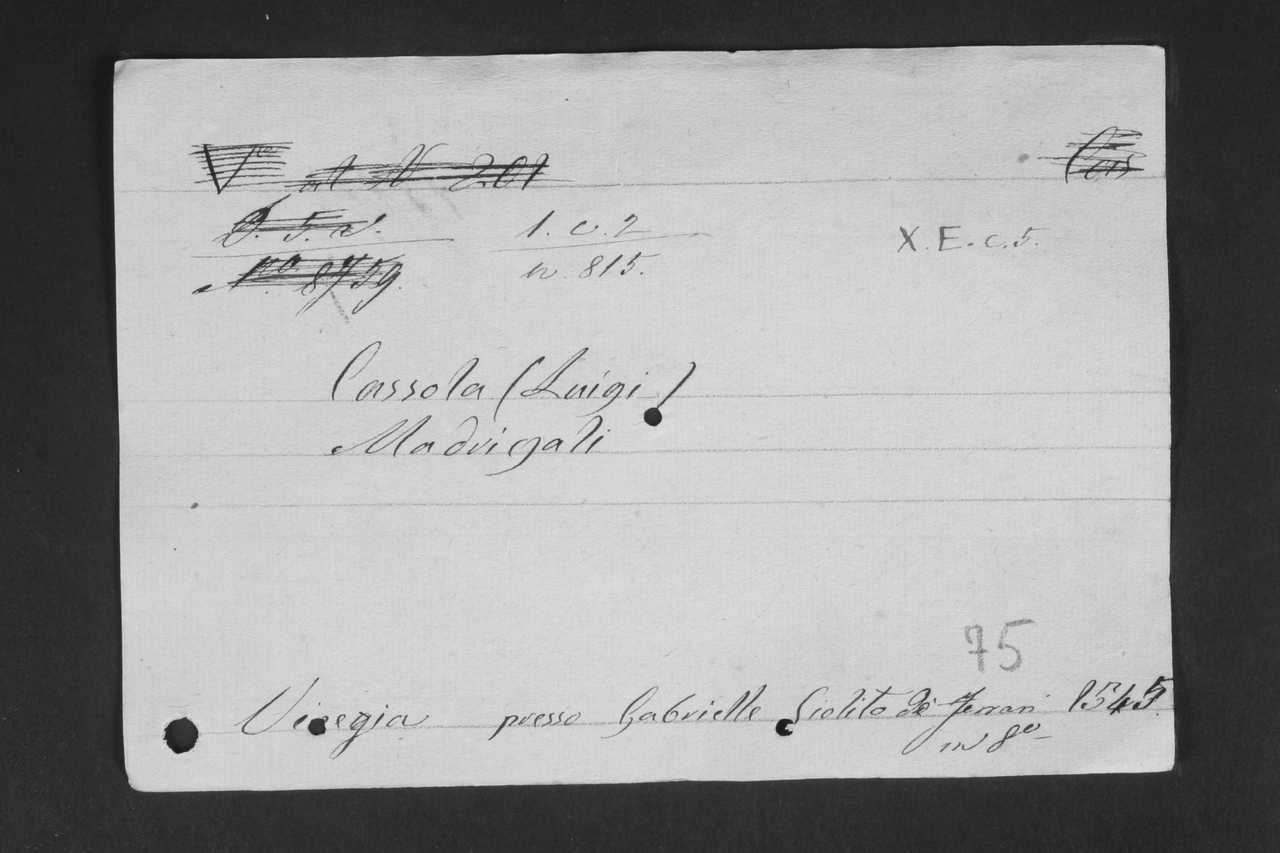 art N 201
Cas
8. 5. a.
1. c. 2
X. E. c. 5.
N.o 8759.
n. 815.
Cassola (Luigi)
Madrigali
75
Vinegia presso Gabrielle Giolito de Ferrari 1545.
in 8o